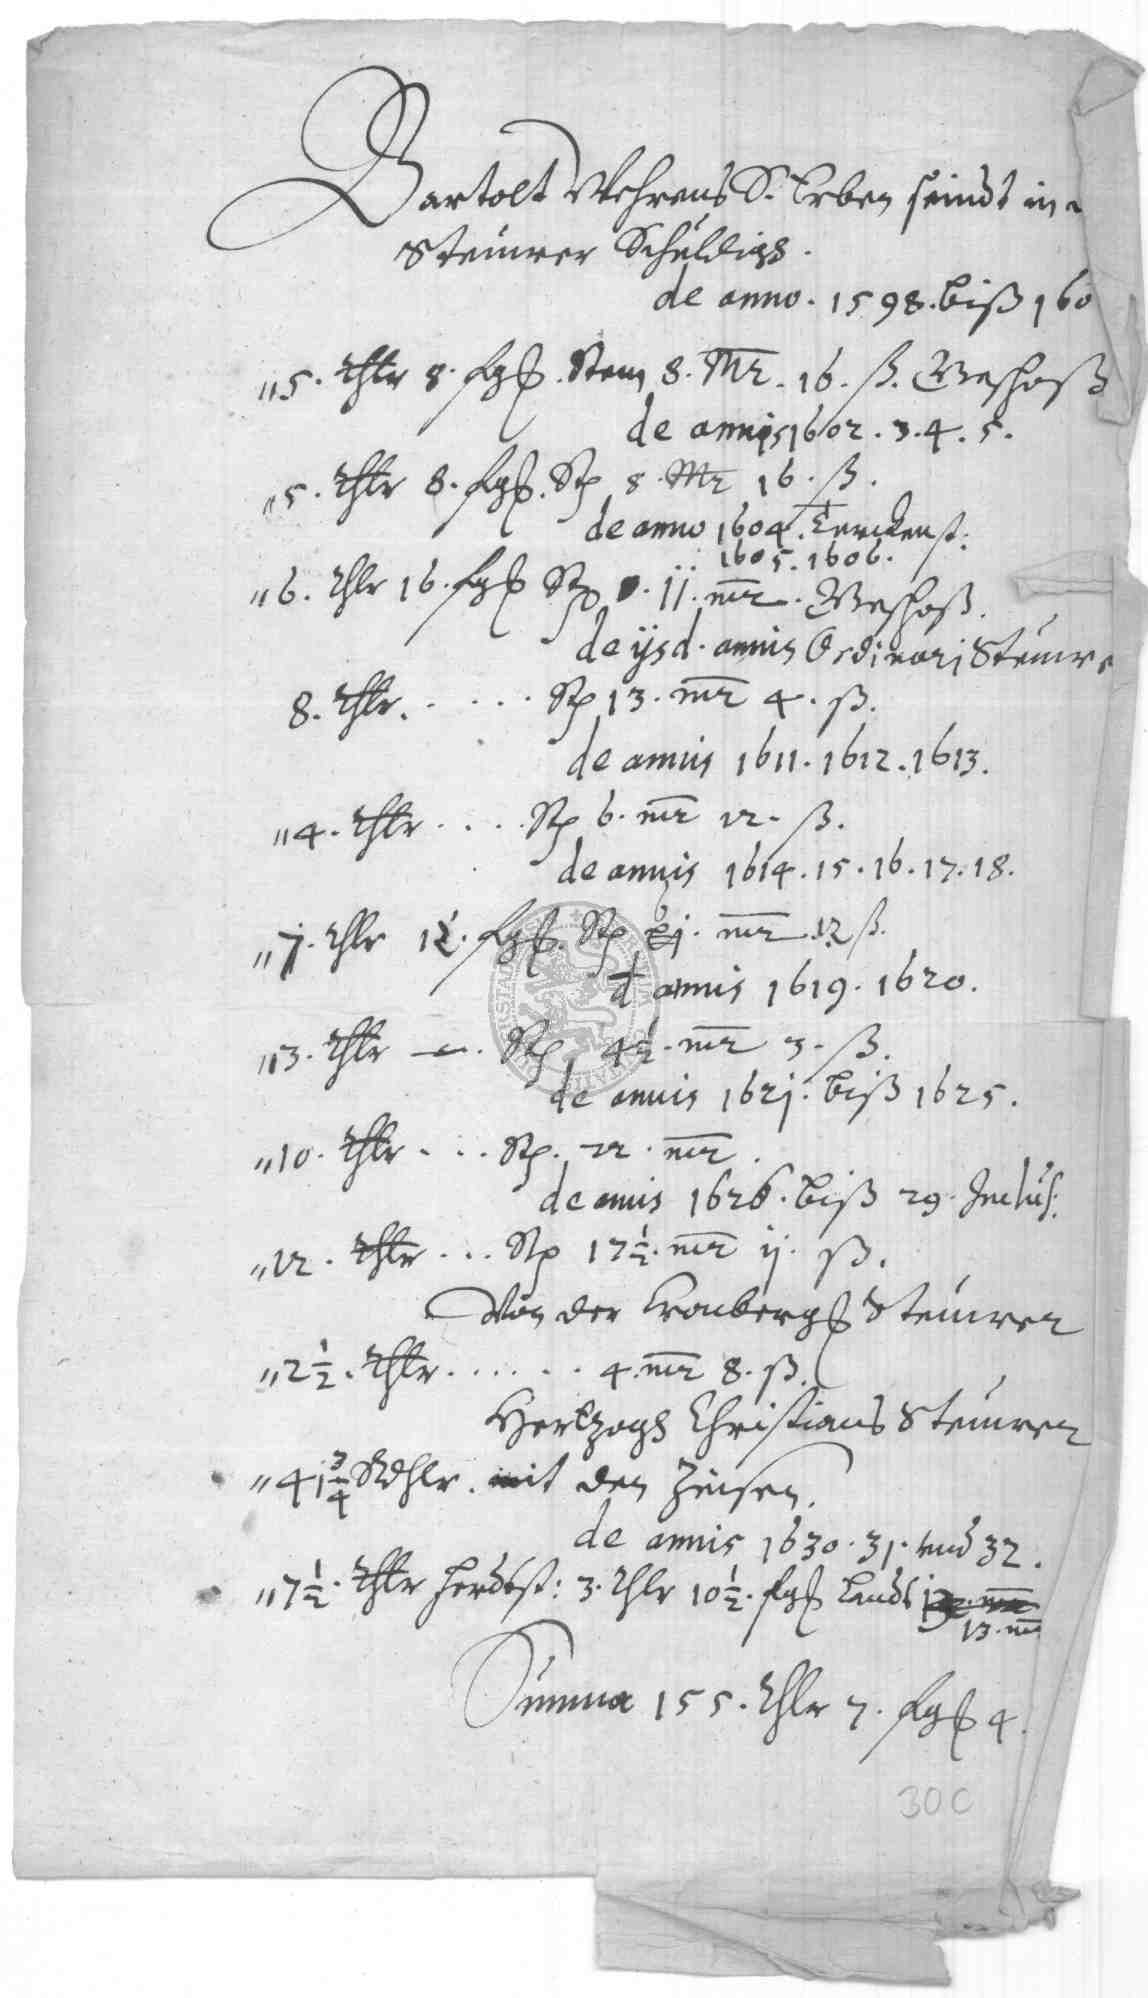 Bartolt Wehrens S. Erben seindt in
Steurer Schuldigh.
de anno. 1598. biß 160
5. thlr 8. fgß. 8. Mr. 16. ß.
de annis 1602. 3. 4. 5.
5. thlr 8. fgß. Stp 8. Mr 16. ß.
de anno 1604. Turckenst:
1605. 1606.
6. thlr 16. fgß Stp jj. mr.
de ijsd. annis Ordinarj Steure
8. thlr. . . . . Stp 13. mr 4. ß.
de annis 1611. 1612. 1613.
4. thlr . . . . Stp 6. mr 12. ß.
de annis 1614. 15. 16. 17. 18.
7. thlr fgß. Stp mr 12 ß.
annis 1619. 1620.
3. thlr Stp 4½. mr 3. ß.
de annis 162j. biß 1625.
10. thlr . . . Stp. 22. mr.
de annis 1626. biß 29. Inclus:
12. thlr . . . Stp 17½. mr ij. ß.
Von der Cronbergß Steuren
2½. thlr . . . . . . 4. mr 8. ß.
Hertzogh Christians Steuren
41¾ Rdhlr. mit den Zinsen.
de annis 1630. 31. und 32.
7½. thlr herdst: 3. thlr 10½. fgß Lands
13. mr
Summa 155. thlr 7. fgß 4.
300